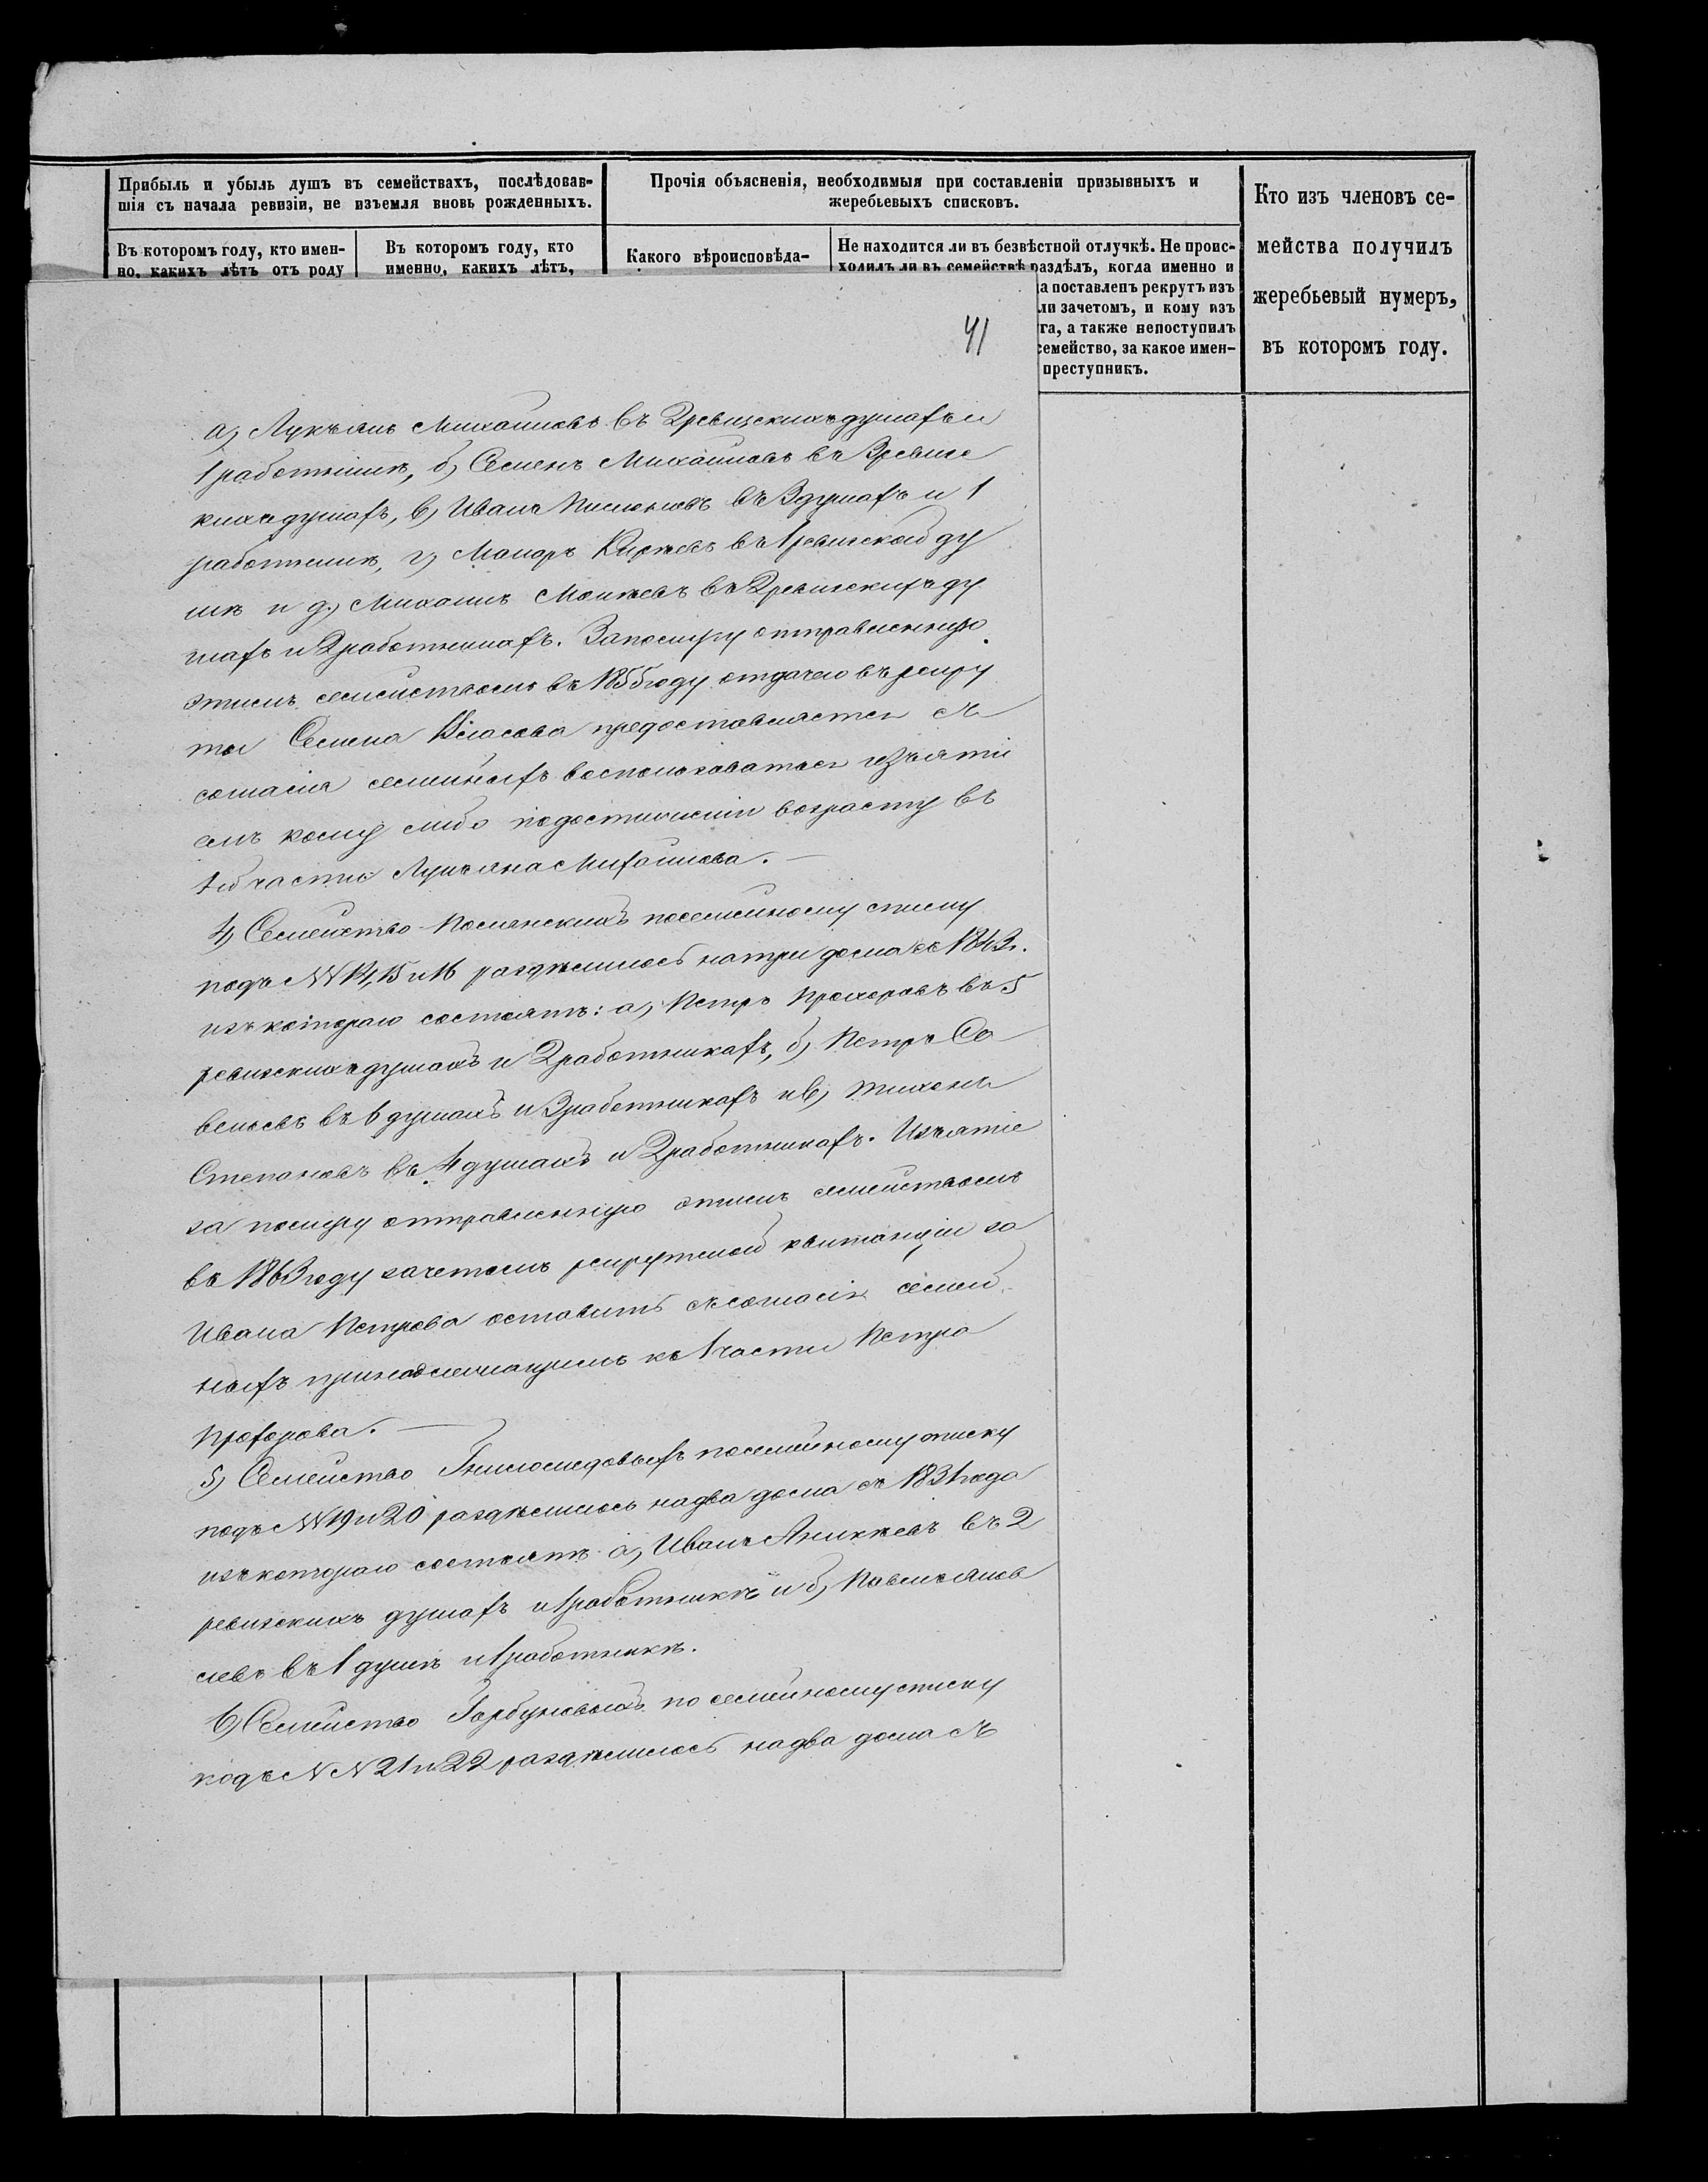 Прибыль и убыль душъ въ семействахъ, послѣдовав-
шія съ начала ревизіи, не изъемля вновь рожденныхъ.
Въ которомъ году, кто имен-
но, какихъ лѣтъ отъ роду
Въ которомъ году, кто
именно, какихъ лѣтъ,
Прочія объясненія, необходимыя при составленіи призывныхъ и
жеребьевыхъ списковъ.
Какого вѣроисповѣда-
Не находится ли въ безвѣстной отлучкѣ. Не проис-
ходилъ ли въ семействѣ раздѣлъ, когда именно и
а поставленъ рекрутъ изъ
ли зачетомъ, и кому изъ
га, а также непоступилъ
семейство, за какое имен-
преступникъ.
Кто изъ членовъ се-
мейства получилъ
жеребьевый нумеръ,
въ которомъ году.
41
а) Лукьянъ Михаиловъ въ 2 ревизскихъ душахъ и
1 работникѣ, б) Семенъ Михаиловъ въ 3 ревизс
кихъ душахъ, в) Иванъ въ 3 душахъ и 1
работникѣ, г) въ 1 ревизской ду
шѣ и д) Михаилъ въ 2 ревизскихъ ду
шахъ и 2 работникахъ. За послугу отправленную
этимъ семействомъ въ 1855 году отдачею въ рекру
ты Семена Власова предоставляется съ
согласія семейныхъ воспользоваться изъяті
емъ кому либо по достиженіи возрасту въ
1й части Лукьяна Михаилова. —
4) Семейство посемейному списку
подъ NN 14, 15 и 16 раздѣлилось на три дома съ 1843 г.
изъ котораго состоятъ: а) Петръ Прохоровъ въ 5
ревизскихъ душахъ и 2 работникахъ, б) Петръ Са
вельевъ въ 6 душахъ и 3 работникахъ и в) Тихонъ
Степановъ въ 4 душахъ и 2 работникахъ. Изъятіе
за послугу отправленную этимъ семействомъ
въ 1863 году зачетомъ рекрутской квитанціи за
Ивана Петрова оставить съ согласія семей
ныхъ принадлежащимъ къ 1 части Петра
Прохорова. —
5) Семейство Гниломедовыхъ посемейному списку
подъ NN 19 и 20 раздѣлилось на два дома съ 1831 года
изъ котораго состоятъ а) Иванъ Аникѣевъ въ 2
ревизскихъ душахъ и 1 работникѣ и б)
въ 1 душѣ и 1 работникѣ.
6) Семейство Горбуновыхъ по семейному списку
подъ NN 21 и 22 раздѣлилось на два дома съ